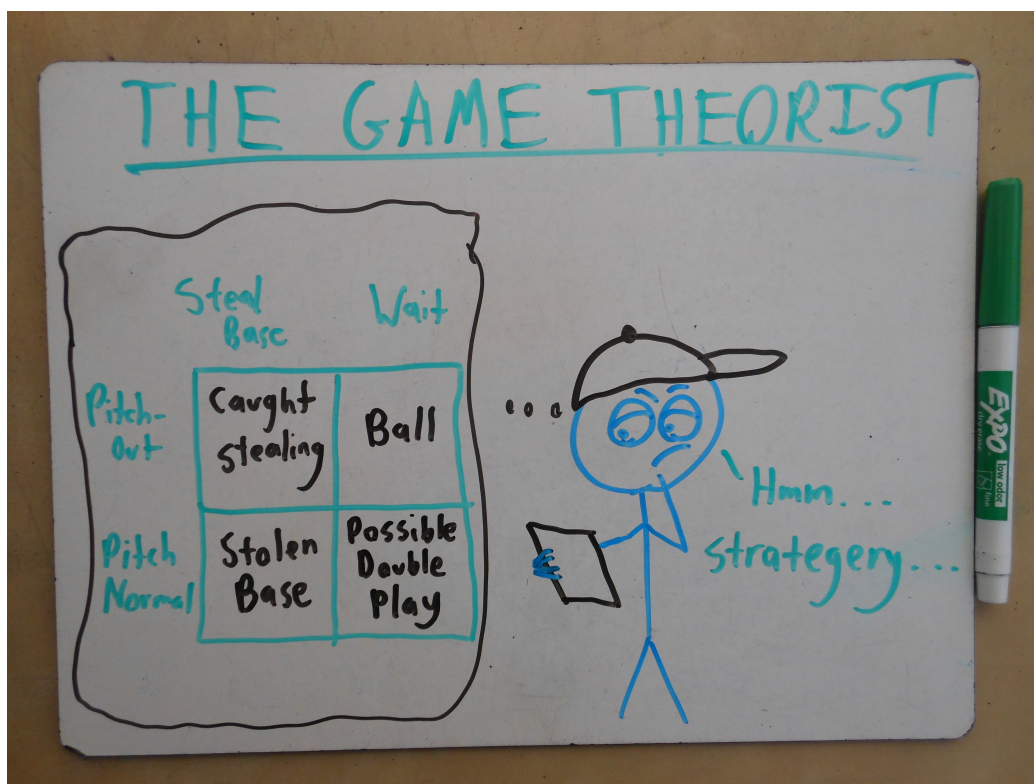 THE GAME THEORIST
Steal
Base
Wait
Pitch-
Out
Caught
stealing
Ball
Pitch
Normal
Stolen
Base
Possible
Double
Play
...
Hmm...
strategery...
EXPO
low odor
fine